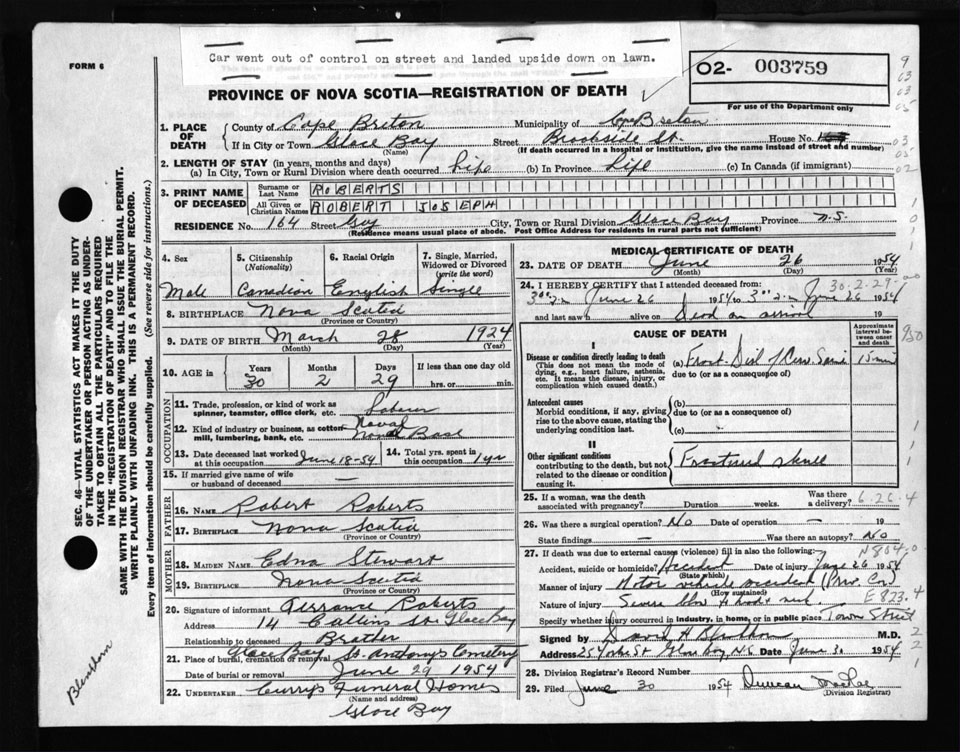 Car went out of control on street and landed upside down on lawn.
FORM 6
O2- 003759
PROVINCE OF NOVA SCOTIA—REGISTRATION OF DEATH
For use of the Department only
1. PLACE OF DEATH
County of Cape Breton Municipality of Cape Breton
If in City or Town Glace Bay (Name) Street Brookside St. House No.
(If death occurred in a hospital or institution, give the name instead of street and number)
2. LENGTH OF STAY (in years, months and days)
(a) In City, Town or Rural Division where death occurred Life (b) In Province Life (c) In Canada (if immigrant)
3. PRINT NAME OF DECEASED
Surname or Last Name ROBERTS
All Given or Christian Names ROBERT JOSEPH
RESIDENCE No. 164 Street Guy City, Town or Rural Division Glace Bay Province N.S.
(Residence means usual place of abode. Post Office Address for residents in rural parts not sufficient)
4. Sex Male
5. Citizenship (Nationality) Canadian
6. Racial Origin English
7. Single, Married, Widowed or Divorced (write the word) Single
8. BIRTHPLACE Nova Scotia
(Province or Country)
9. DATE OF BIRTH March 28 1924
(Month) (Day) (Year)
10. AGE in Years 30 Months 2 Days 29 If less than one day hrs. or min.
OCCUPATION
11. Trade, profession, or kind of work as spinner, teamster, office clerk, etc. Laborer
12. Kind of industry or business, as cotton mill, lumbering, bank, etc. Naval Base
13. Date deceased last worked at this occupation June 18-54
14. Total yrs. spent in this occupation 1 yr
15. If married give name of wife or husband of deceased —
FATHER
16. NAME Robert Roberts
17. BIRTHPLACE Nova Scotia
(Province or Country)
MOTHER
18. MAIDEN NAME Edna Stewart
19. BIRTHPLACE Nova Scotia
(Province or Country)
20. Signature of informant Terrance Roberts
Address 14 Collins St. Glace Bay
Relationship to deceased Brother
21. Place of burial, cremation or removal Glace Bay St. Anthony's Cemetery
Date of burial or removal June 29 1954
22. UNDERTAKER Curry's Funeral Homes
(Name and address)
Glace Bay
MEDICAL CERTIFICATE OF DEATH
23. DATE OF DEATH June 26 1954
(Month) (Day) (Year)
30-2-29
24. I HEREBY CERTIFY that I attended deceased from:
June 26 1954 to June 26 1954
and last saw alive on Dead on arrival 19
CAUSE OF DEATH
Approximate interval between onset and death
I
Disease or condition directly leading to death
(This does not mean the mode of dying, e.g., heart failure, asthenia, etc. It means the disease, injury, or complication which caused death.)
(a) 15 min
due to (or as a consequence of)
Antecedent causes
Morbid conditions, if any, giving rise to the above cause, stating the underlying condition last.
(b)
due to (or as a consequence of)
(c)
II
Other significant conditions
contributing to the death, but not related to the disease or condition causing it.
Fractured skull
25. If a woman, was the death associated with pregnancy? Duration weeks. Was there a delivery?
6-26-4
26. Was there a surgical operation? No Date of operation — 19
State findings — Was there an autopsy? No
27. If death was due to external causes (violence) fill in also the following:
N804-0
Accident, suicide or homicide? Accident (State which) Date of injury June 26 1954
Manner of injury Motor vehicle accident (Priv. Car)
(How sustained)
E823.4
Nature of injury Severe blow to head & neck.
Specify whether injury occurred in industry, in home, or in public place Town Street
Signed by M.D.
Address 25 Yorke St Glace Bay, N.S. Date June 30 1954
28. Division Registrar's Record Number
29. Filed June 30 1954 Duncan MacRae
(Division Registrar)
SEC. 46—VITAL STATISTICS ACT MAKES IT THE DUTY
OF THE UNDERTAKER OR PERSON ACTING AS UNDERTAKER
TO OBTAIN ALL THE PARTICULARS REQUIRED
IN THE "REGISTRATION OF DEATH" AND TO FILE THE
SAME WITH THE DIVISION REGISTRAR WHO SHALL ISSUE THE BURIAL PERMIT.
WRITE PLAINLY WITH UNFADING INK. THIS IS A PERMANENT RECORD.
Every item of information should be carefully supplied. (See reverse side for instructions.)